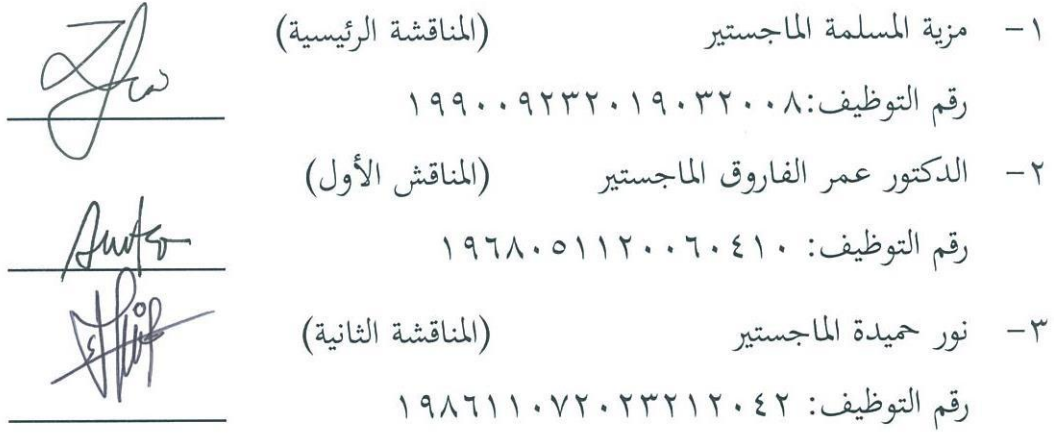 ١- مزية المسلمة الماجستير (المناقشة الرئيسية)
رقم التوظيف:١٩٩٠٠٩٢٣٢٠١٩٠٣٢٠٠٨
٢- الدكتور عمر الفاروق الماجستير (المناقش الأول)
رقم التوظيف: ١٩٦٨٠٥١١٢٠٠٦٠٤١٠
٣- نور حميدة الماجستير (المناقشة الثانية)
رقم التوظيف: ١٩٨٦١١٠٧٢٠٢٣٢١٢٠٤٢